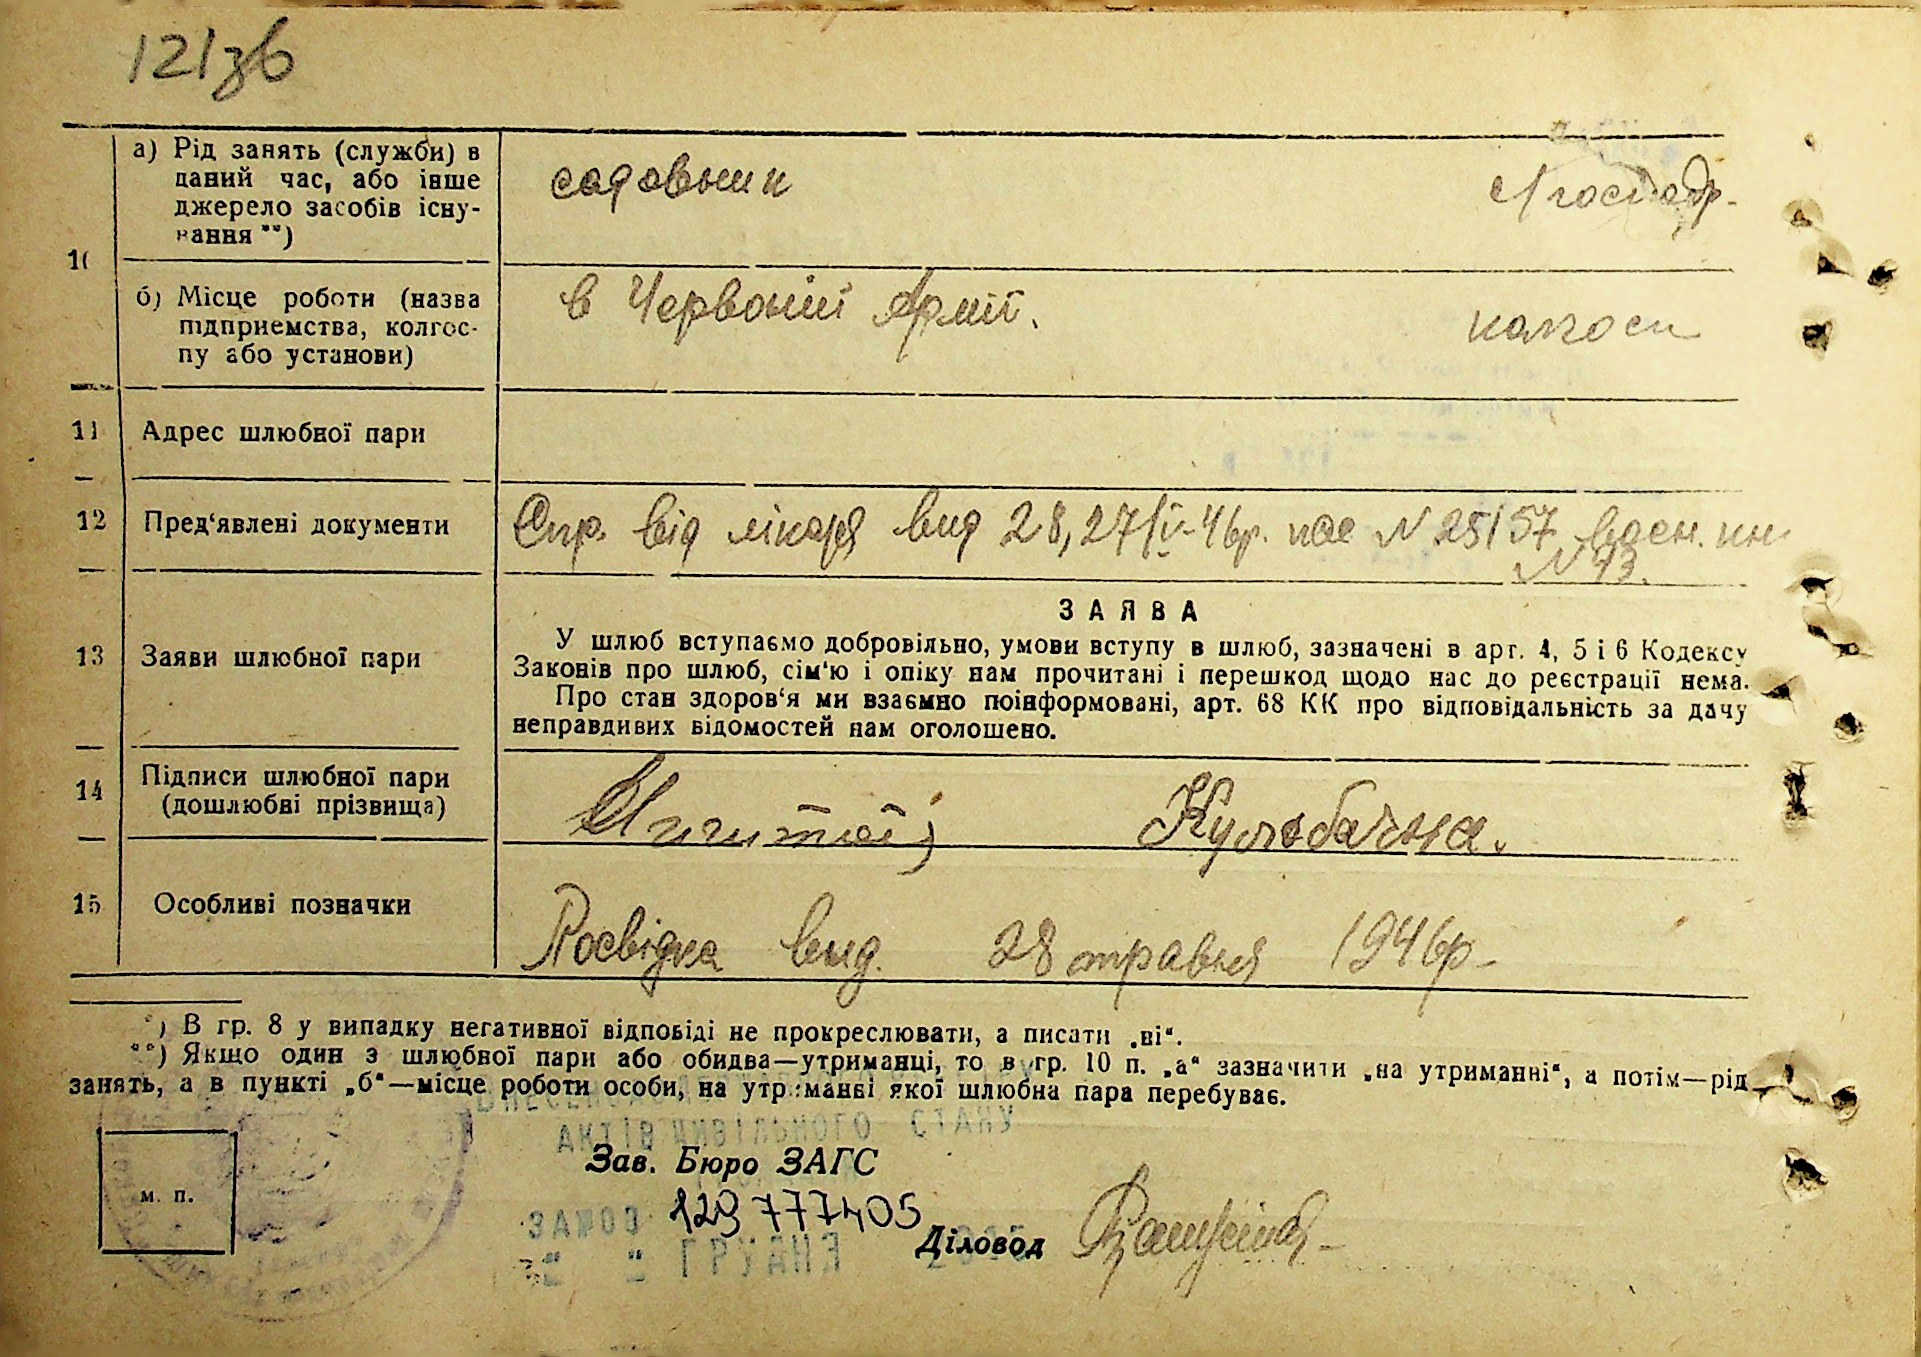 121зв
а) Рід занять (служби) в
даний час, або інше
джерело засобів існу-
вання **)
садовник
с/господр-
10
б) Місце роботи (назва
підприємства, колгос-
пу або установи)
в Червоній Армії.
колгосп
11 Адрес шлюбної пари
12 Пред'явлені документи
Спр. від лікаря вид 28, 27/IV-46р. пас N 25157 воєн. кн
N 13.
ЗАЯВА
13 Заяви шлюбної пари
У шлюб вступаємо добровільно, умови вступу в шлюб, зазначені в арт. 4, 5 і 6 Кодексу
Законів про шлюб, сім'ю і опіку нам прочитані і перешкод щодо нас до реєстрації нема.
Про стан здоров'я ми взаємно поінформовані, арт. 68 КК про відповідальність за дачу
неправдивих відомостей нам оголошено.
14 Підписи шлюбної пари
(дошлюбні прізвища)
Кульбачна.
15 Особливі позначки
Посвідка вид. 28 травня 1946р-
*) В гр. 8 у випадку негативної відповіді не прокреслювати, а писати „ні“.
**) Якщо один з шлюбної пари або обидва—утриманці, то в гр. 10 п. „а“ зазначити „на утриманні“, а потім—рід
занять, а в пункті „б“—місце роботи особи, на утриманні якої шлюбна пара перебуває.
АКТІВ ЦИВІЛЬНОГО СТАНУ
Зав. Бюро ЗАГС
м. п.
129 777405
Діловод
ГРУДНЯ